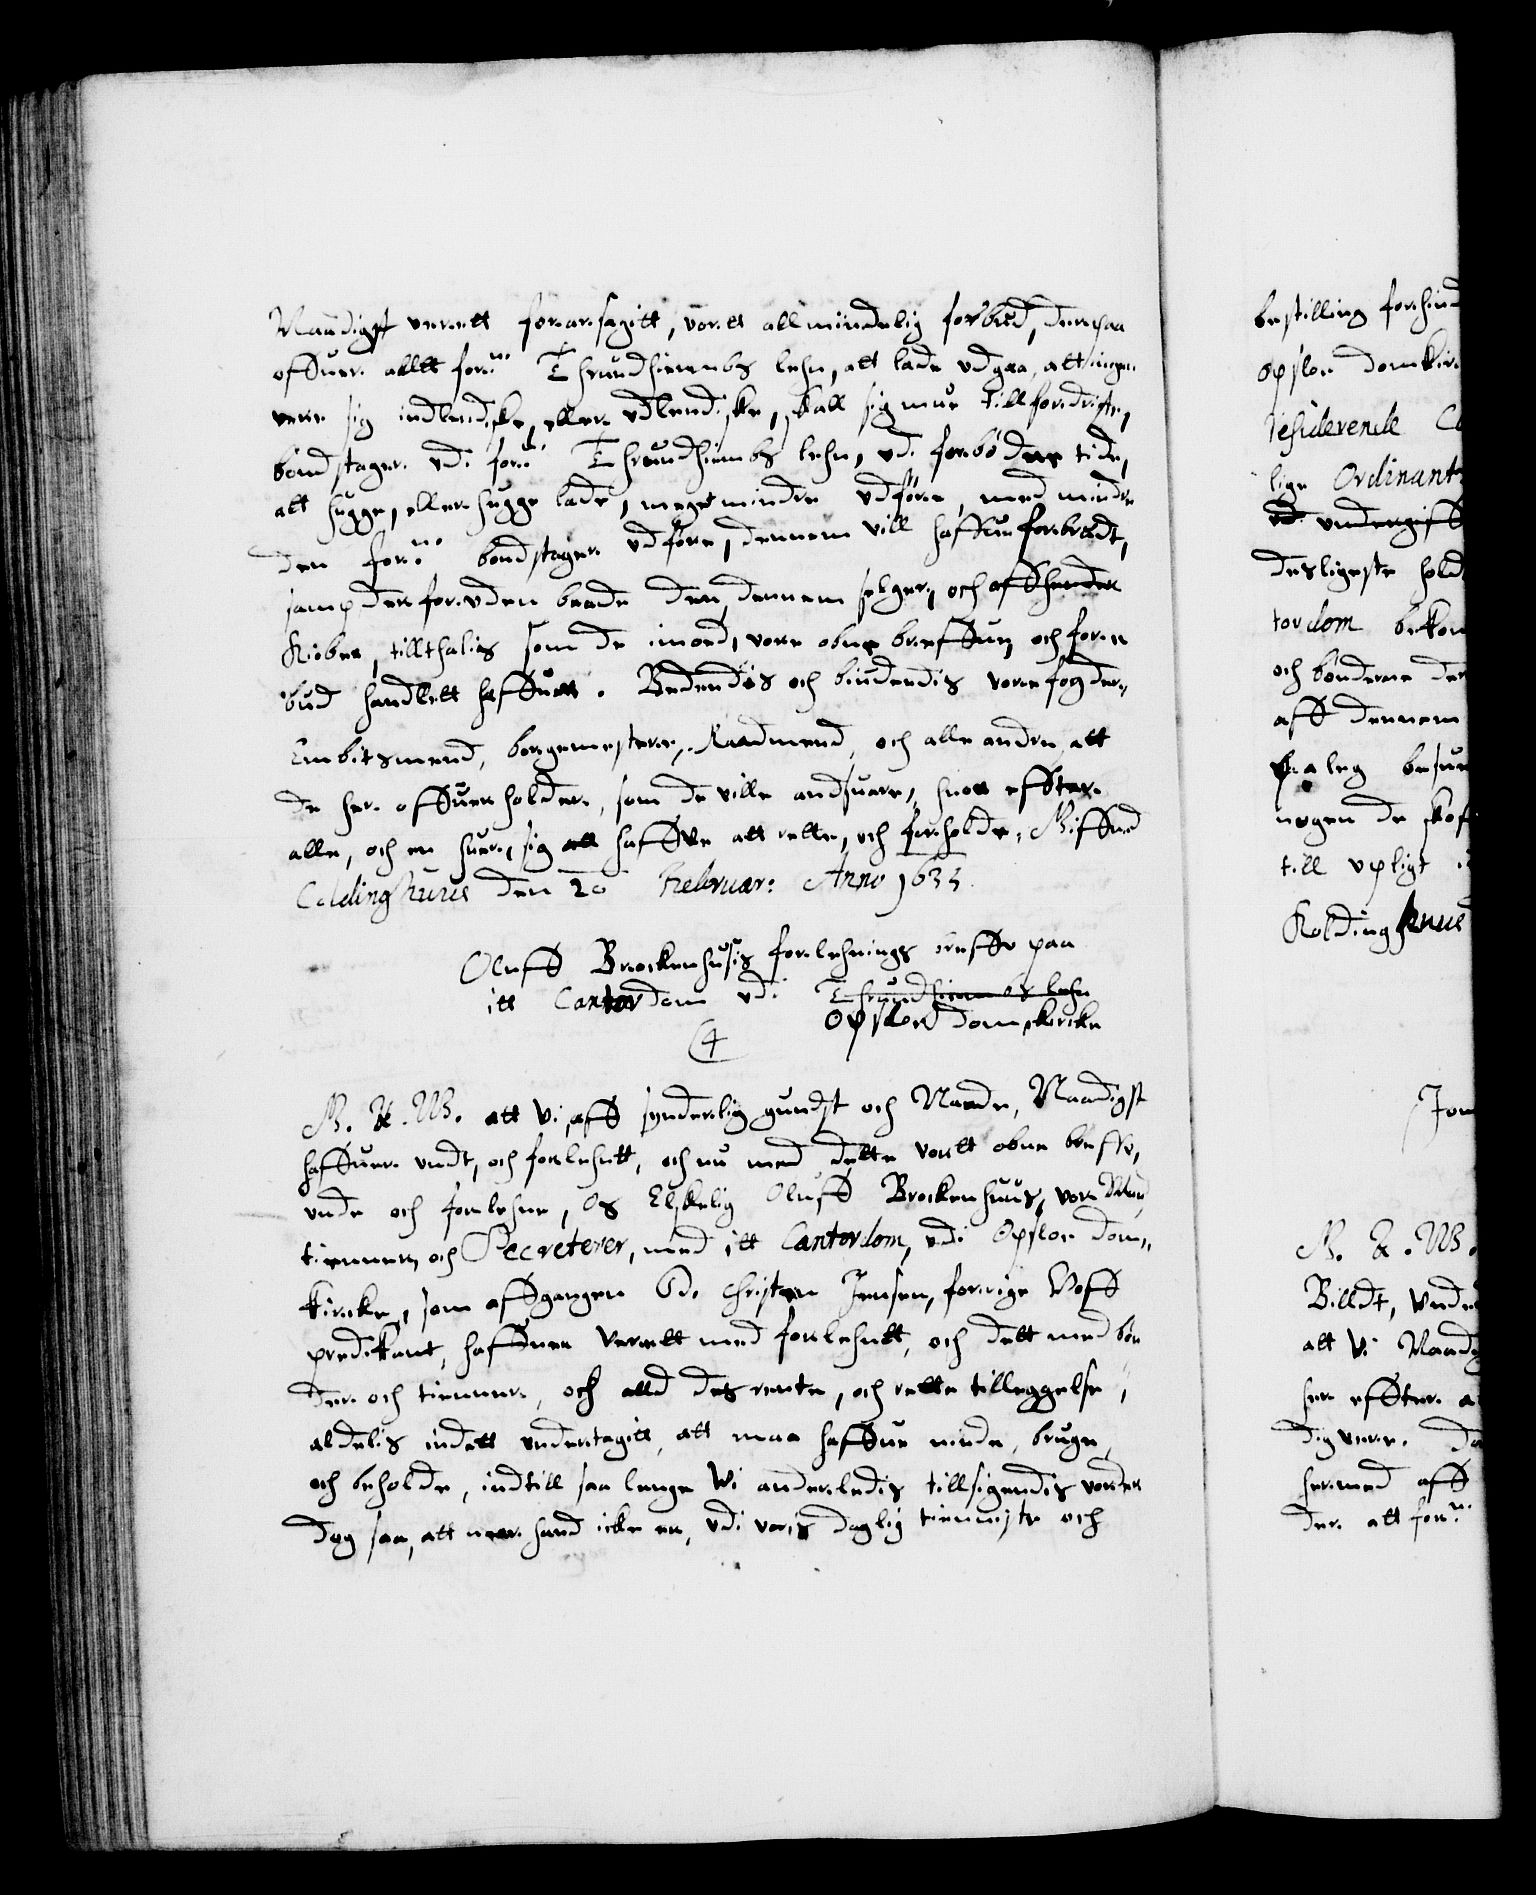 Naadigst verett foraarsagitt, voris allmindelig forbud, derpaa
offuer alltt for:ne Thrundhiembs lehn, att lade udgaa, att ingen
vere sig indlendiske, eller udlendiske, skall sig mue tillfordriste,
bondstager udi for:ne Thrundhiembs lehn, udi forbödne tide,
att hugge, eller hugge lade, meget mindre udföre, med mindre
den for:ne bondstager udföre, dennem vill haffue forbrödt,
samp derforuden baade den, dennem selger, och affhender
Kiöber, tillthalis som de imod, vore obne breffue, och for
bud handlett haffuer. Bedendis och biudendis vore fogder,
Embitsmend, borgemestere, Raadmend, och alle andre, att
de her offuer holder, som de ville andsuare, huor effter
alle, och en huer, sig att haffue att rette, och forholde, Giffued
Coldinghuus den 20 Februar: Anno 1633.
Oluff Brockenhusis forlehnings breff paa
itt Cantordom udi Thrundhiembs lehn
Opsloe domkircke
4
G. A. W. att Vi, aff synderlig gundst och Naade, Naadigst
haffuer undt, och forlehntt, och nu med dette vortt obne breff,
unde och forlehne, Os Elskelig Oluff Brockenhuus, vor Mand
tienner, och Secreterer, med itt Cantordom, udi Opsloe dom„
kircke, som affgangen Do. Christen Jensen, forrige Hoff
predikant, haffuer verett med forlehntt, och dett med bön
der och tienner, och alld des rente, och rette tilleggelse,
aldelis indett undertagitt, att maa haffue niude, bruge,
och beholde, indtill saa lenge Wi anderledis tillsigendis vorder
dog saa, att naar hand icke er, udi voris daglig tienniste och
bestilling forhind
Opsloe domkir
residerende Ca
lige Ordinant
ud: undergiff
desligeste hold
tordom bekom
och bönderne der
aff dennem
paaleg besue
nogen de skof
till upligt
Koldinghuus
Jon
G. A. W.
Billdt, Unde
att Vi Naad
ser effter a
dig vere. Da
hermed aff
der att for:ne